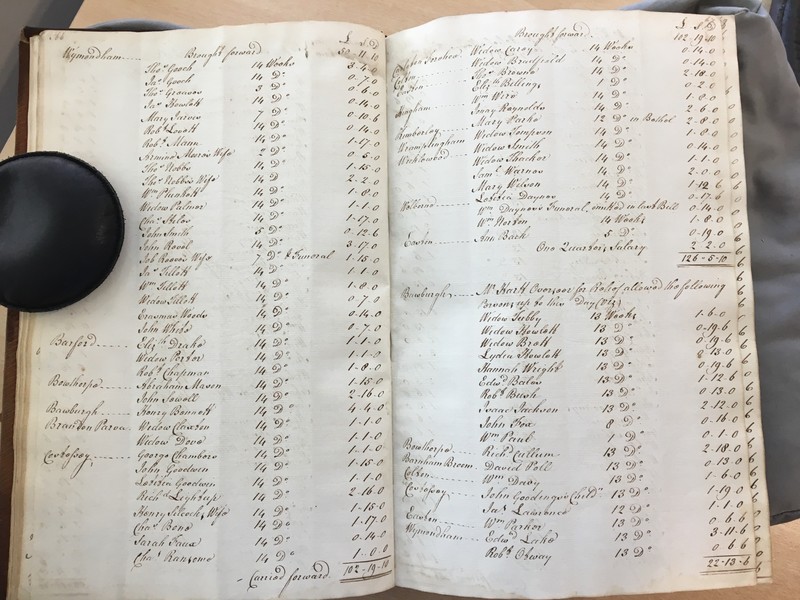 £ S D
Wymondham Brought forward 50-11-10
Thos Gooch 14 Weeks
Jas Gooch 14 Do 0-7-0
Thos Greaves 3 Do 0-6-0
Jas Howlett 14 Do 0-14-0
Mary Jarves 7 Do 0-10-6
Robt Lovett 14 Do 0-14-0
Robt Mann 14 Do 1-17-0
Wife 2 Do 0-5-0
Thos Hobbs 14 Do 1-15-0
Thos Hobbs's Wife 14 Do 2-2-0
Wm Plunkett 14 Do 1-8-0
Widow Palmer 14 Do 1-1-0
Chas 14 Do 1-17-0
John Smith 5 Do 0-12-6
John Royal 14 Do 3-17-0
Job Reeve's Wife 7 Do & Funeral 1-15-0
Jas Tillett 14 Do 1-1-0
Wm Tillett 14 Do 1-8-0
Widow Tillett 14 Do 0-7-0
Erasmus Woods 14 Do 0-14-0
John White 14 Do 0-7-0
Barford Elizth Drake 14 Do 1-1-0
Widow Porter 14 Do 1-1-0
Robt Chapman 14 Do 1-8-0
Bowthorpe Abraham Mason 14 Do 1-15-0
John Sowell 14 Do 2-16-0
Bawburgh Henry Bennett 14 Do 4-4-0
Brandon Parva Widow Claxton 14 Do 1-1-0
Widow Dove 14 Do 1-1-0
Cossey George Chambers 14 Do 1-1-0
John Goodwin 14 Do 1-15-0
Goodwin 14 Do 1-1-0
Richd 14 Do 2-16-0
Henry Silcock's Wife 14 Do 1-15-0
Chas Bone 14 Do 1-17-0
Sarah Faux 14 Do 0-14-0
Chas Ransome 14 Do 1-0-0
Carried forward 102-19-10
£ S D
Brought forward 102-19-10
Widow Carey 14 Weeks 0-14-0
Widow Bradford 14 Do 0-14-0
Easton Thos Browne 14 Do 2-18-0
Elizth Billing 1 Do 0-2-0
Wm Wire 14 Do 1-8-0
Hingham Jonay Reynolds 14 Do 2-6-0
Mary Parke 12 Do in Bethel 2-8-0
Kimberley Widow Tompson 14 Do 1-8-0
Wramplingham Widow Smith 14 Do 0-14-0
Wicklewood Widow Thacker 14 Do 1-1-0
Saml Warnes 14 Do 2-0-0
Mary Wilson 14 Do 1-12-6
Welborne Letitia Daynes 14 Do 0-17-6
Wm Daynes's Funeral, omitted in last Bill 0-14-0
Wm Norton 14 Weeks 1-8-0
Easton Ann Back 5 Do 0-19-0
One Quarter's Salary 2-2-0
126-5-10
Bawburgh Mr Hartt Overseer for Relief allowed the following
Persons up to this Day (Vizt)
Widow Tubby 13 Weeks 1-6-0
Widow Howlett 13 Do 0-19-6
Widow Brett 13 Do 0-19-6
Lydia Howlett 13 Do 13-0
Hannah Wright 13 Do 0-19-6
Edwd Bailes 13 Do 1-12-6
Robt Bush 13 Do 0-13-0
Isaac Jackson 13 Do 2-12-0
John Fox 8 Do 0-16-0
Wm Paul 1 Do 0-1-0
Bowthorpe Richd Cullum 13 Do 2-18-0
Barnham Broom David Poll 13 Do 0-13-0
Colton Wm Davy 13 Do 1-6-0
Cossey John Goodwyn's Childn 13 Do 1-19-0
Jas Lawrence 12 Do 1-1-0
Easton Wm Parker 13 Do 0-6-0
Wymondham Edwd Lake 13 Do 3-11-6
Robt Otway 13 Do 0-6-6
22-13-6